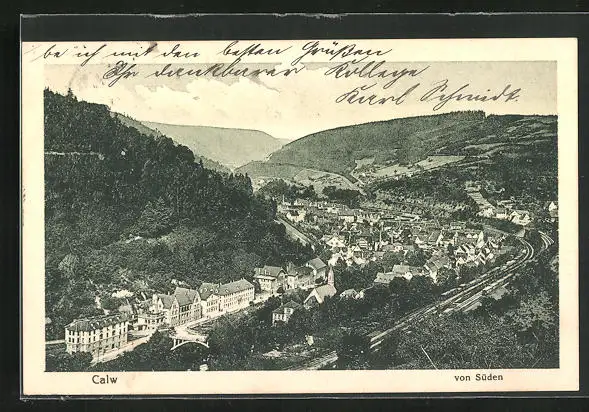 be ich mit den besten Grüßen
Ihr dankbarer Kollege
Karl Schmidt.
Calw
von Süden